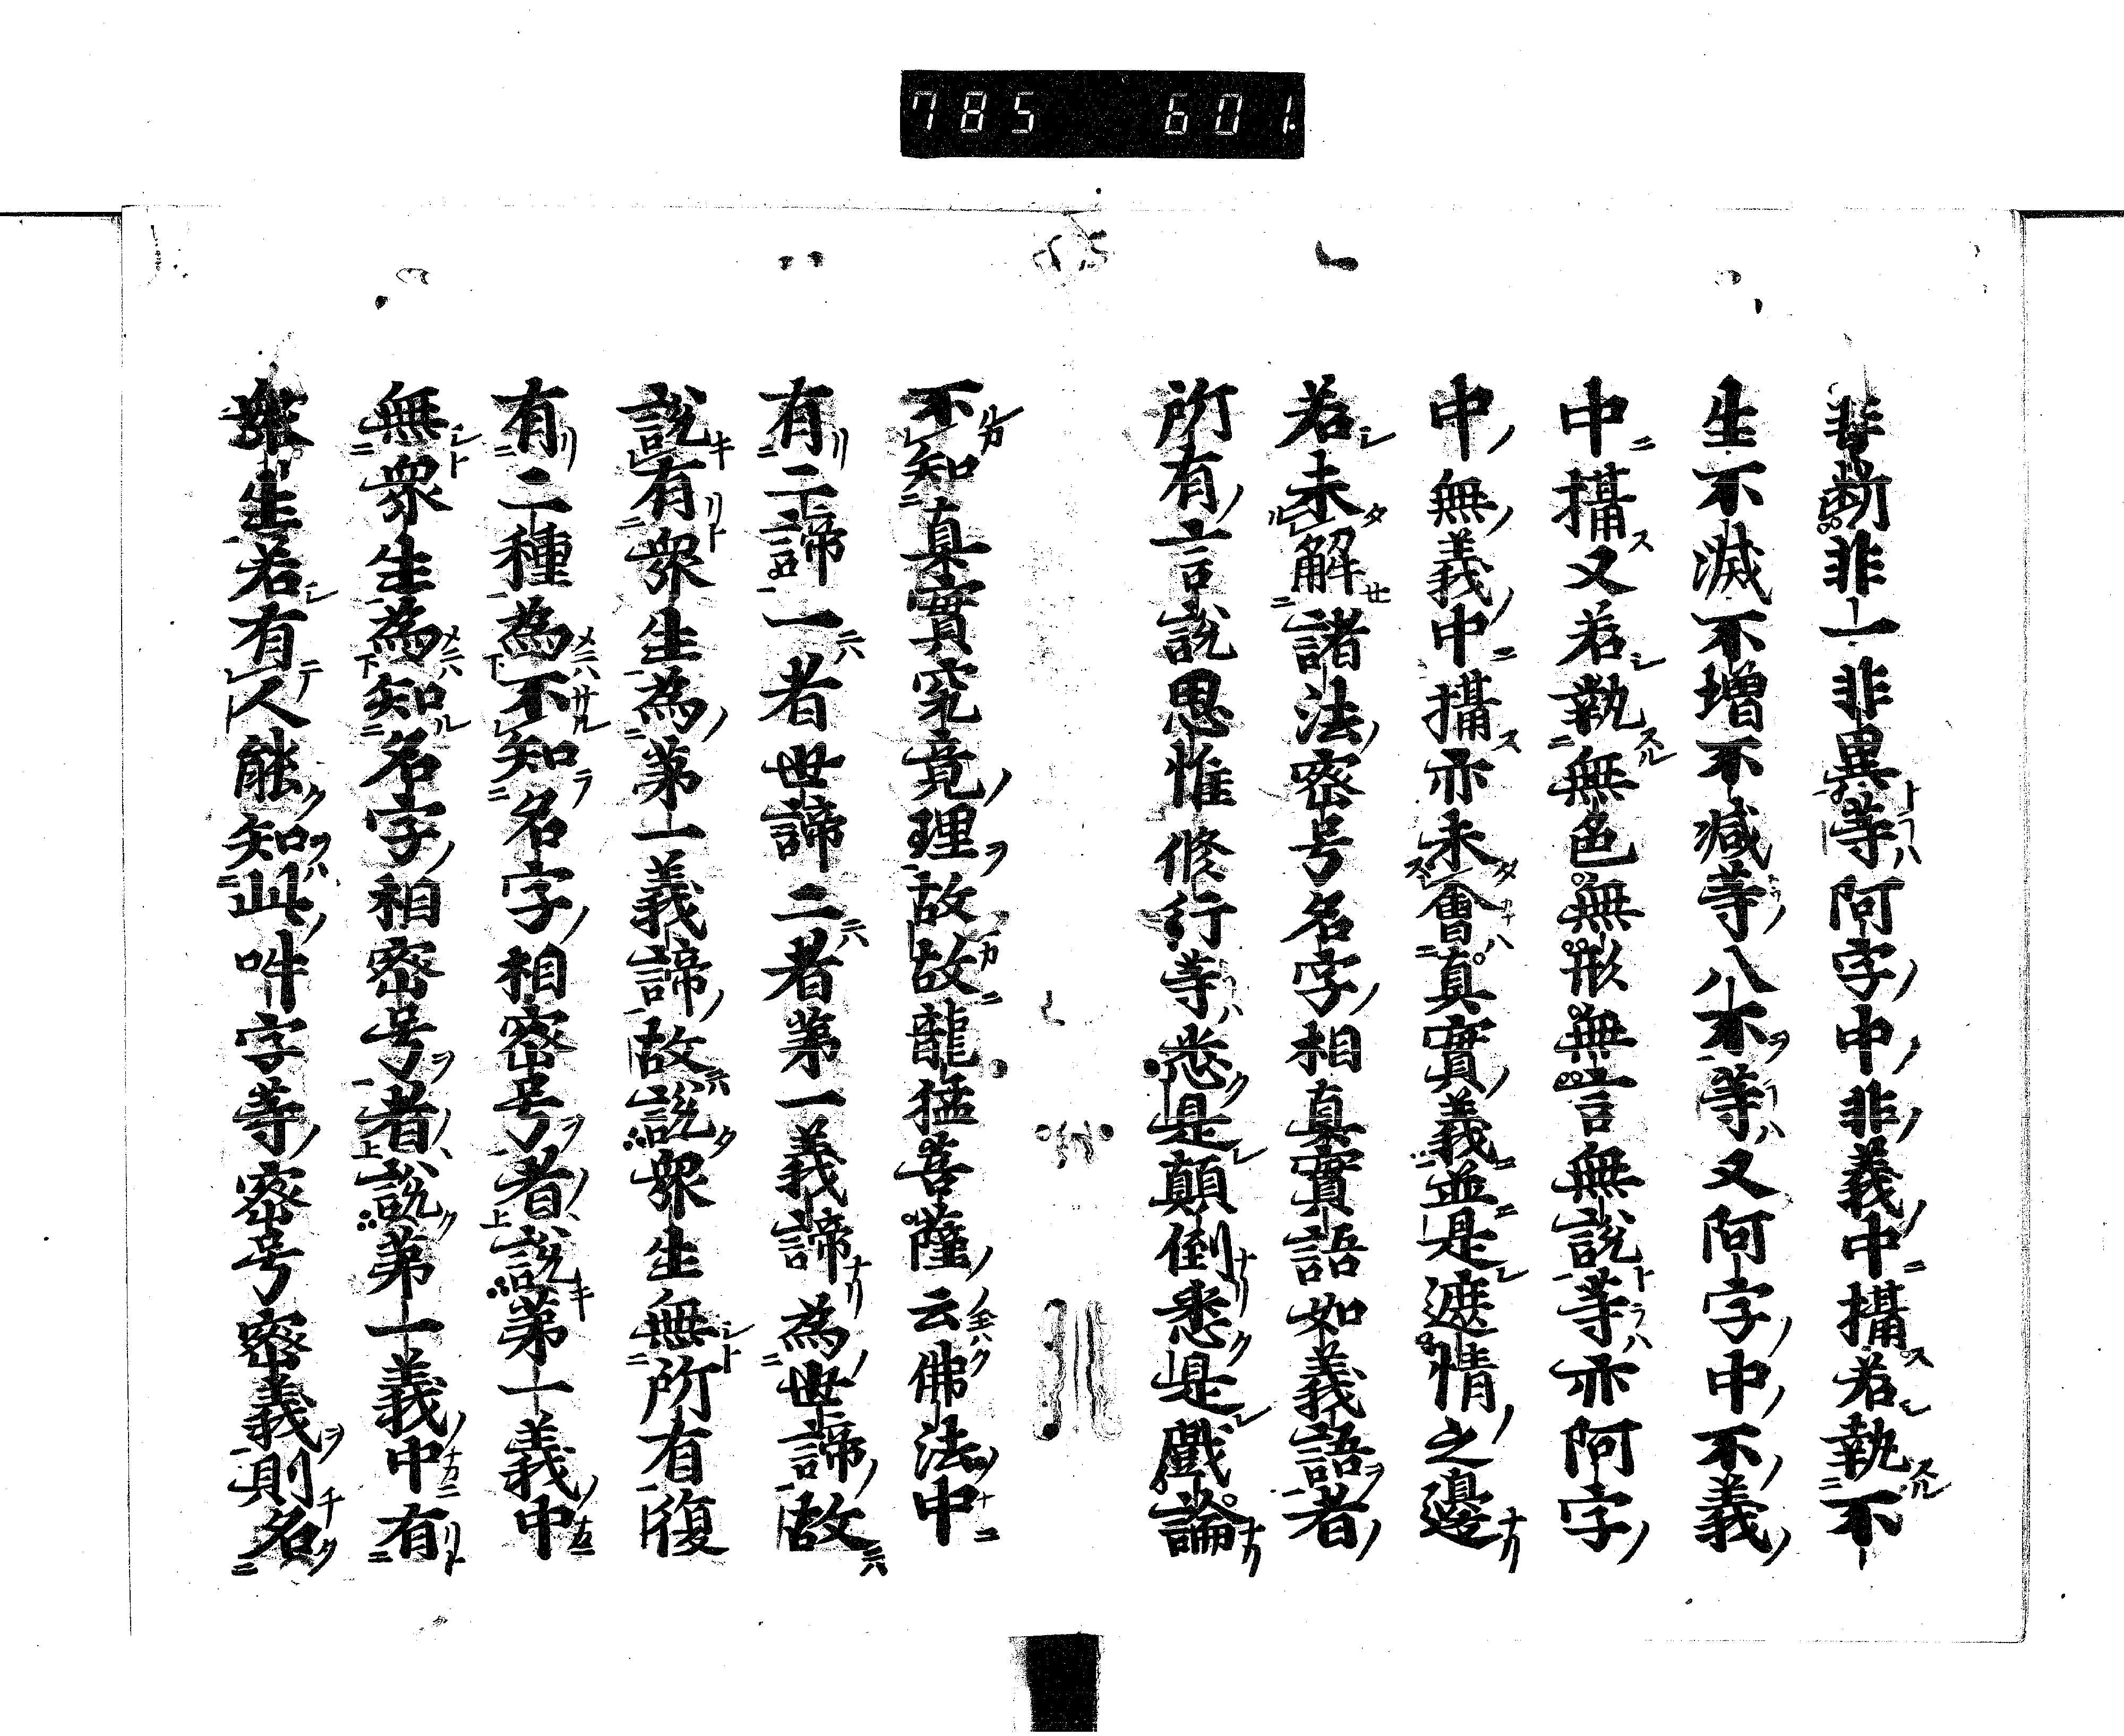 785 601.
非断非一非異等阿字中非義中攝若執不
生不滅不增不減等八不等又阿字中不義
中攝又若執無色無形無言無說等亦阿字
中無義中攝亦未會真實義並是遮情之邊
若未解諸法密号名字相真實語如義語者
所有言說思惟修行等悉是顛倒悉是戲論
不知真實究竟理故故龍猛菩薩云佛法中
有二諦一者世諦二者第一義諦為世諦故
說有衆生為第一義諦故說衆生無所有復
有二種為不知名字相密号者說第一義中
無衆生為知名字相密号者說第一義中有
衆生若有人能知此吽字等密号密義則名